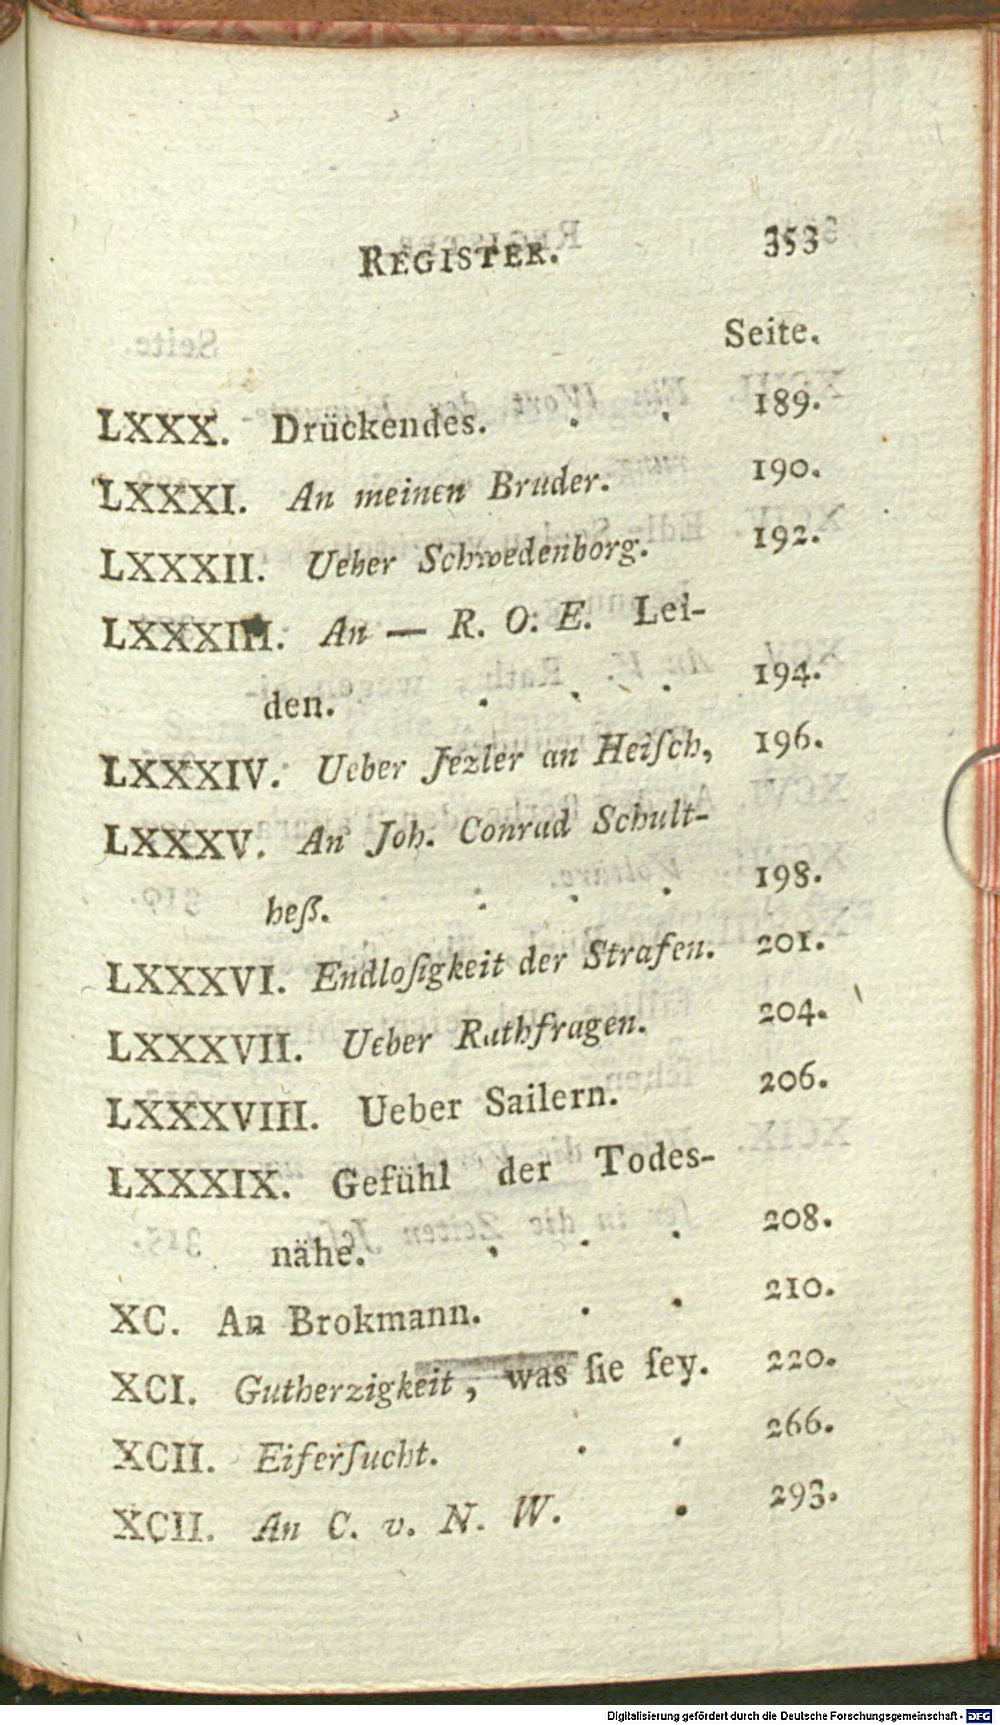 REGISTER. 353
Seite.
LXXX. Drückendes. . . 189.
LXXXI. An meinen Bruder. 190.
LXXXII. Ueber Schwedenborg. 192.
LXXXIII. An — R. O. E. Lei-
den. . . . 194.
LXXXIV. Ueber Jezler an Heiſch, 196.
LXXXV. An Joh. Conrad Schult-
heß. . . . 198.
LXXXVI. Endloſigkeit der Strafen. 201.
LXXXVII. Ueber Rathfragen. 204.
LXXXVIII. Ueber Sailern. 206.
LXXXIX. Gefühl der Todes-
nähe. . . . 208.
XC. An Brokmann. . . 210.
XCI. Gutherzigkeit, was ſie ſey. 220.
XCII. Eiferſucht. . . 266.
XCII. An C. v. N. W. . 293.
Digitalisierung gefördert durch die Deutsche Forschungsgemeinschaft - DFG